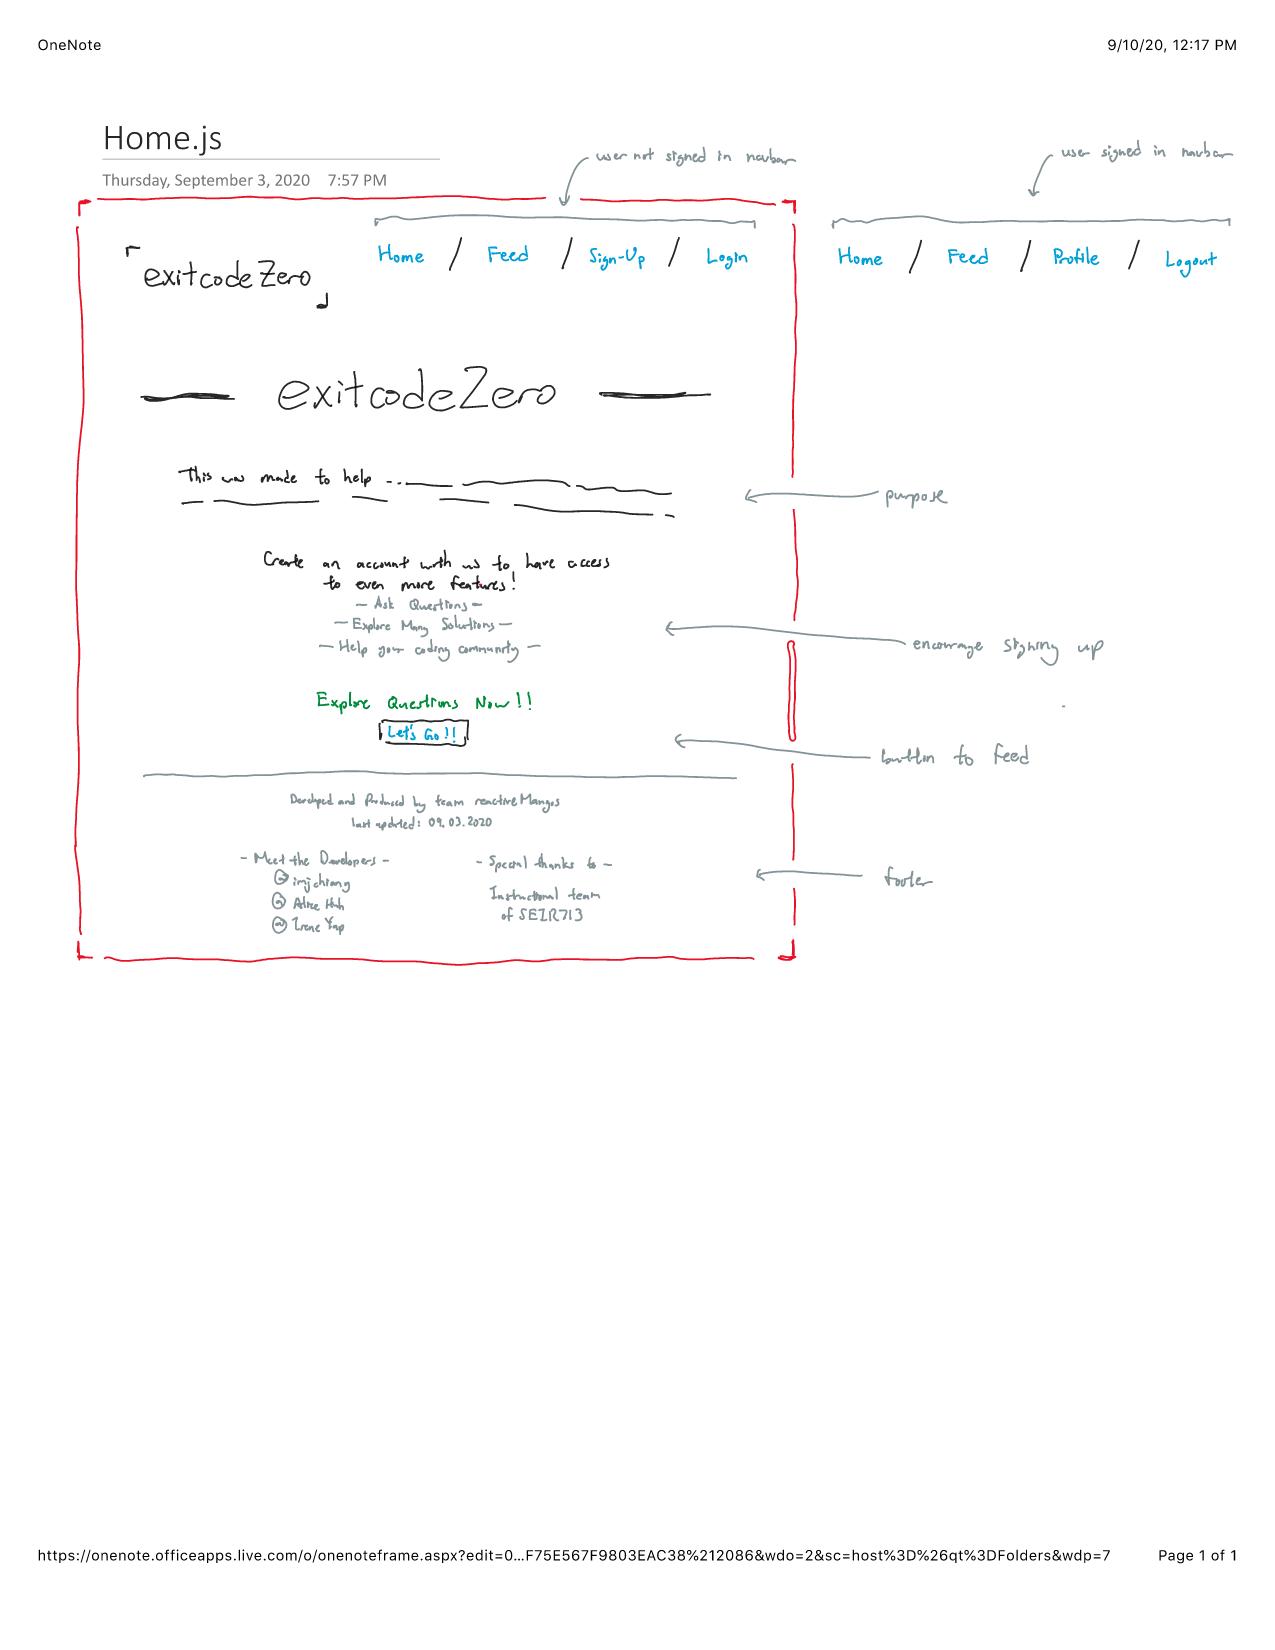 OneNote
9/10/20, 12:17 PM
Home.js
Thursday, September 3, 2020 7:57 PM
user not signed in navbar
user signed in navbar
Home / Feed / Sign-Up / Login
Home / Feed / Profile / Logout
exitcodeZero
exitcodeZero
This was made to help ...
purpose
Create an account with us to have access
to even more features!
- Ask Questions -
- Explore Many Solutions -
- Help your coding community -
encourage signing up
Explore Questions Now!!
Let's Go!!
button to feed
Developed and Produced by team reactiveMangos
last updated: 09.03.2020
- Meet the Developers -
- Special thanks to -
imjchiang
Alice Huh
Irene Yap
Instructional team
of SEIR713
footer
https://onenote.officeapps.live.com/o/onenoteframe.aspx?edit=0...F75E567F9803EAC38%212086&wdo=2&sc=host%3D%26qt%3DFolders&wdp=7
Page 1 of 1